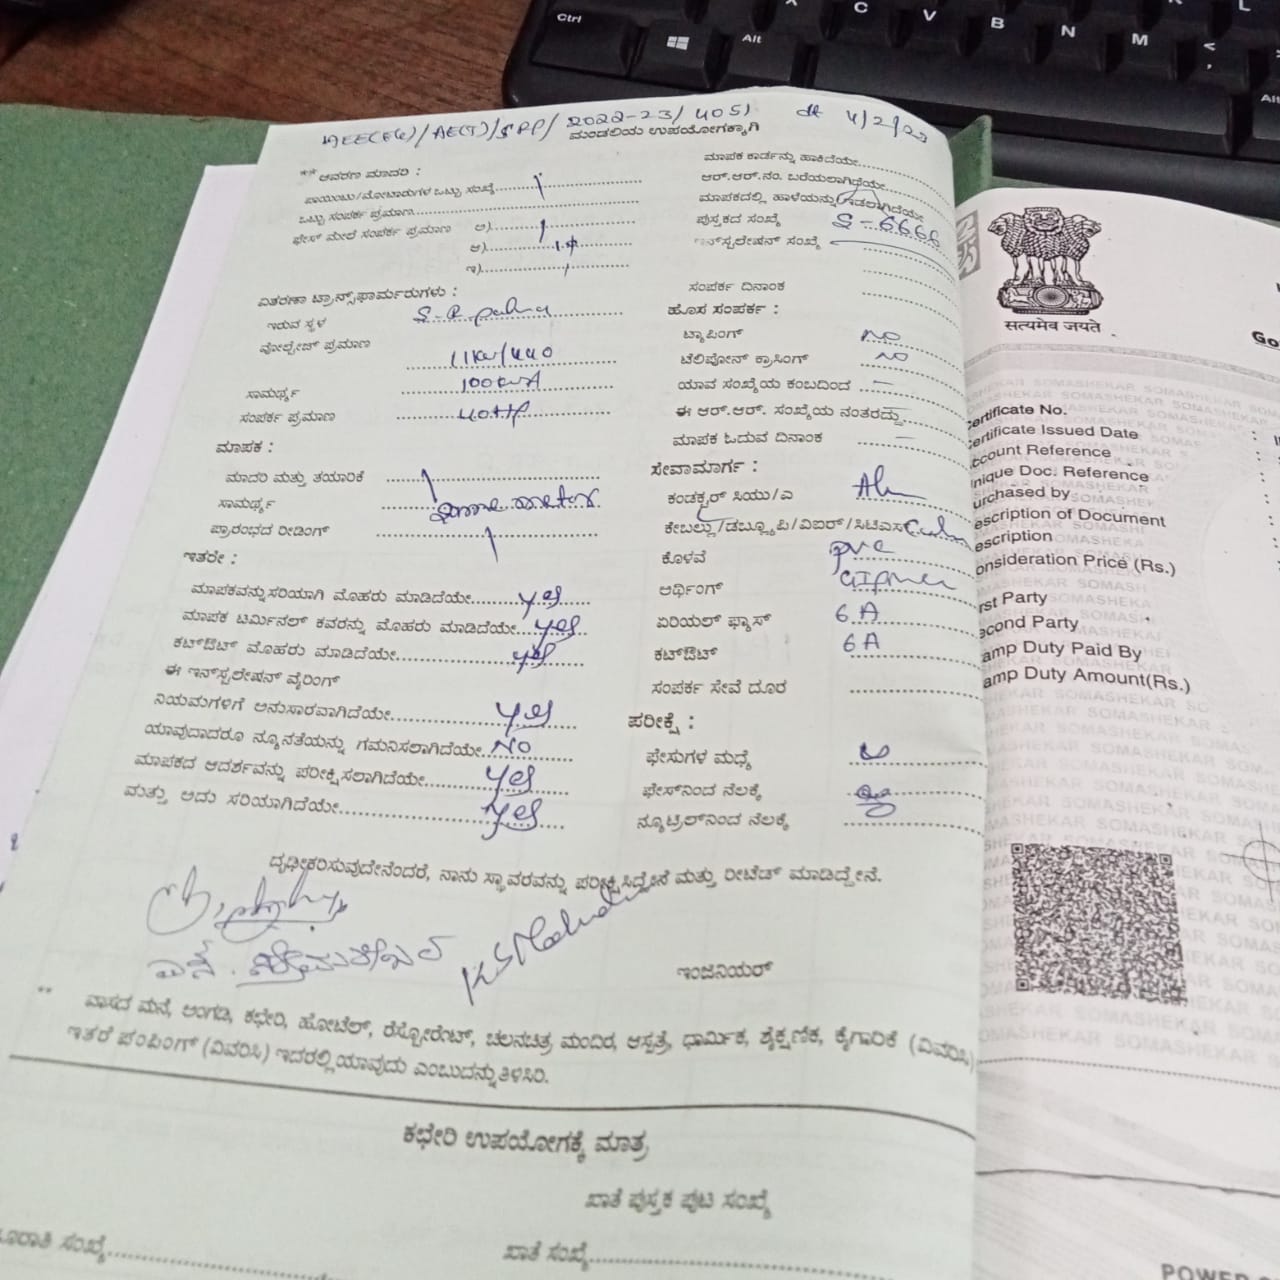 Ctrl
Alt
C
V
B
N
M
L
<
,
Alt
AEE(Ele)/AE(T)/SPP/2022-23/4051 dt 4/2/23
ಮಂಡಲಿಯ ಉಪಯೋಗಕ್ಕಾಗಿ
** ಆವರಣ ಮಾದರಿ :
ಪಾಯಿಂಟು/ಮೋಟಾರುಗಳ ಒಟ್ಟು ಸಂಖ್ಯೆ
ಒಟ್ಟು ಸಂಪರ್ಕ ಪ್ರಮಾಣ
ಫೇಸ್ ಮೇಲೆ ಸಂಪರ್ಕ ಪ್ರಮಾಣ ಅ)
ಆ)
ಇ)
ವಿತರಣಾ ಟ್ರಾನ್ಸ್‌ಫಾರ್ಮರುಗಳು :
ಇರುವ ಸ್ಥಳ
ವೋಲ್ಟೇಜ್ ಪ್ರಮಾಣ 11KV/440
ಸಾಮರ್ಥ್ಯ 100KVA
ಸಂಪರ್ಕ ಪ್ರಮಾಣ 40HP
ಮಾಪಕ :
ಮಾದರಿ ಮತ್ತು ತಯಾರಿಕೆ
ಸಾಮರ್ಥ್ಯ Same meter
ಪ್ರಾರಂಭದ ರೀಡಿಂಗ್
ಇತರೇ :
ಮಾಪಕವನ್ನು ಸರಿಯಾಗಿ ಮೊಹರು ಮಾಡಿದೆಯೇ yes
ಮಾಪಕ ಟರ್ಮಿನಲ್ ಕವರನ್ನು ಮೊಹರು ಮಾಡಿದೆಯೇ yes
ಕಟ್‌ಔಟ್ ಮೊಹರು ಮಾಡಿದೆಯೇ yes
ಈ ಇನ್‌ಸ್ಟಲೇಷನ್ ವೈರಿಂಗ್
ನಿಯಮಗಳಿಗೆ ಅನುಸಾರವಾಗಿದೆಯೇ yes
ಯಾವುದಾದರೂ ನ್ಯೂನತೆಯನ್ನು ಗಮನಿಸಲಾಗಿದೆಯೇ NO
ಮಾಪಕದ ಆದರ್ಶವನ್ನು ಪರೀಕ್ಷಿಸಲಾಗಿದೆಯೇ yes
ಮತ್ತು ಅದು ಸರಿಯಾಗಿದೆಯೇ yes
ಮಾಪಕ ಕಾರ್ಡನ್ನು ಹಾಕಿದೆಯೇ
ಆರ್.ಆರ್.ನಂ. ಬರೆಯಲಾಗಿದೆಯೇ
ಮಾಪಕದಲ್ಲಿ ಹಾಳೆಯನ್ನು ಇಡಲಾಗಿದೆಯೇ
ಪುಸ್ತಕದ ಸಂಖ್ಯೆ S-6666
ಇನ್‌ಸ್ಟಲೇಷನ್ ಸಂಖ್ಯೆ
ಸಂಪರ್ಕ ದಿನಾಂಕ
ಹೊಸ ಸಂಪರ್ಕ :
ಟ್ಯಾಪಿಂಗ್ NO
ಟೆಲಿಪೋನ್ ಕ್ರಾಸಿಂಗ್ NO
ಯಾವ ಸಂಖ್ಯೆಯ ಕಂಬದಿಂದ –
ಈ ಆರ್.ಆರ್. ಸಂಖ್ಯೆಯ ನಂತರದ್ದು
ಮಾಪಕ ಓದುವ ದಿನಾಂಕ –
ಸೇವಾಮಾರ್ಗ :
ಕಂಡಕ್ಟರ್ ಸಿಯು/ಎ
ಕೇಬಲ್ಲು/ಡಬ್ಲ್ಯೂಪಿ/ವಿಐರ್/ಸಿಟಿಎಸ್
ಕೊಳವೆ pvc
ಅರ್ಥಿಂಗ್
ಏರಿಯಲ್ ಫ್ಯೂಸ್ 6A
ಕಟ್‌ಔಟ್ 6A
ಸಂಪರ್ಕ ಸೇವೆ ದೂರ
ಪರೀಕ್ಷೆ :
ಫೇಸುಗಳ ಮಧ್ಯೆ
ಫೇಸ್‌ನಿಂದ ನೆಲಕ್ಕೆ
ನ್ಯೂಟ್ರಲ್‌ನಿಂದ ನೆಲಕ್ಕೆ
ದೃಢೀಕರಿಸುವುದೇನೆಂದರೆ, ನಾನು ಸ್ಥಾವರವನ್ನು ಪರೀಕ್ಷಿಸಿದ್ದೇನೆ ಮತ್ತು ರೀಟೆಡ್ ಮಾಡಿದ್ದೇನೆ.
ಇಂಜನಿಯರ್
** ವಾಸದ ಮನೆ, ಅಂಗಡಿ, ಕಛೇರಿ, ಹೋಟೆಲ್, ರೆಸ್ಟೋರೆಂಟ್, ಚಲನಚಿತ್ರ ಮಂದಿರ, ಆಸ್ಪತ್ರೆ, ಧಾರ್ಮಿಕ, ಶೈಕ್ಷಣಿಕ, ಕೈಗಾರಿಕೆ (ವಿವರಿಸಿ)
ಇತರೆ ಪಂಪಿಂಗ್ (ವಿವರಿಸಿ) ಇದರಲ್ಲಿ ಯಾವುದು ಎಂಬುದನ್ನು ತಿಳಿಸಿರಿ.
ಕಛೇರಿ ಉಪಯೋಗಕ್ಕೆ ಮಾತ್ರ
ಖಾತೆ ಪುಸ್ತಕ ಪುಟ ಸಂಖ್ಯೆ
ಖಾತೆ ಸಂಖ್ಯೆ
सत्यमेव जयते
Go
SOMASHEKAR SOMASHEKAR
ertificate No.
ertificate Issued Date
ccount Reference
nique Doc. Reference
urchased by
escription of Document
escription
onsideration Price (Rs.)
rst Party
econd Party
amp Duty Paid By
amp Duty Amount(Rs.)
POWER